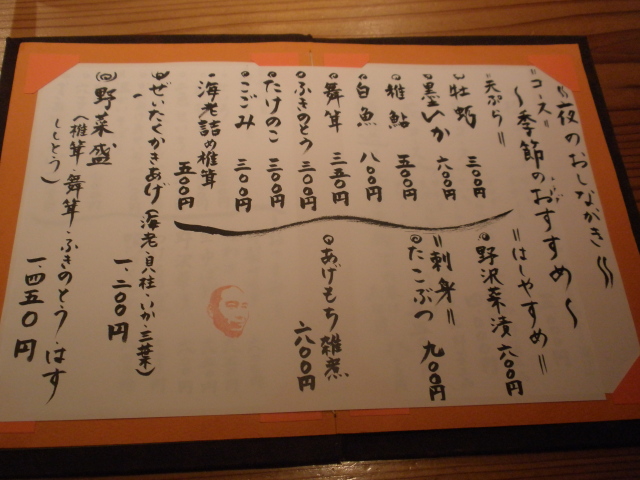 夜のおしながき
〜季節のおすすめ〜
"コース"
"天ぷら"
牡蛎 三〇〇円
墨いか 六〇〇円
稚鮎 五〇〇円
白魚 八〇〇円
舞茸 三五〇円
ふきのとう 三〇〇円
たけのこ 三〇〇円
こごみ 三〇〇円
海老詰め椎茸 五〇〇円
ぜいたくかきあげ(海老・貝柱・いか・三葉) 一、二〇〇円
野菜盛(椎茸・舞茸・ふきのとう・はす
ししとう) 一、四五〇円
"はしやすめ"
野沢菜漬 六〇〇円
"刺身"
たこぶつ 九〇〇円
あげもち雑煮 六〇〇円